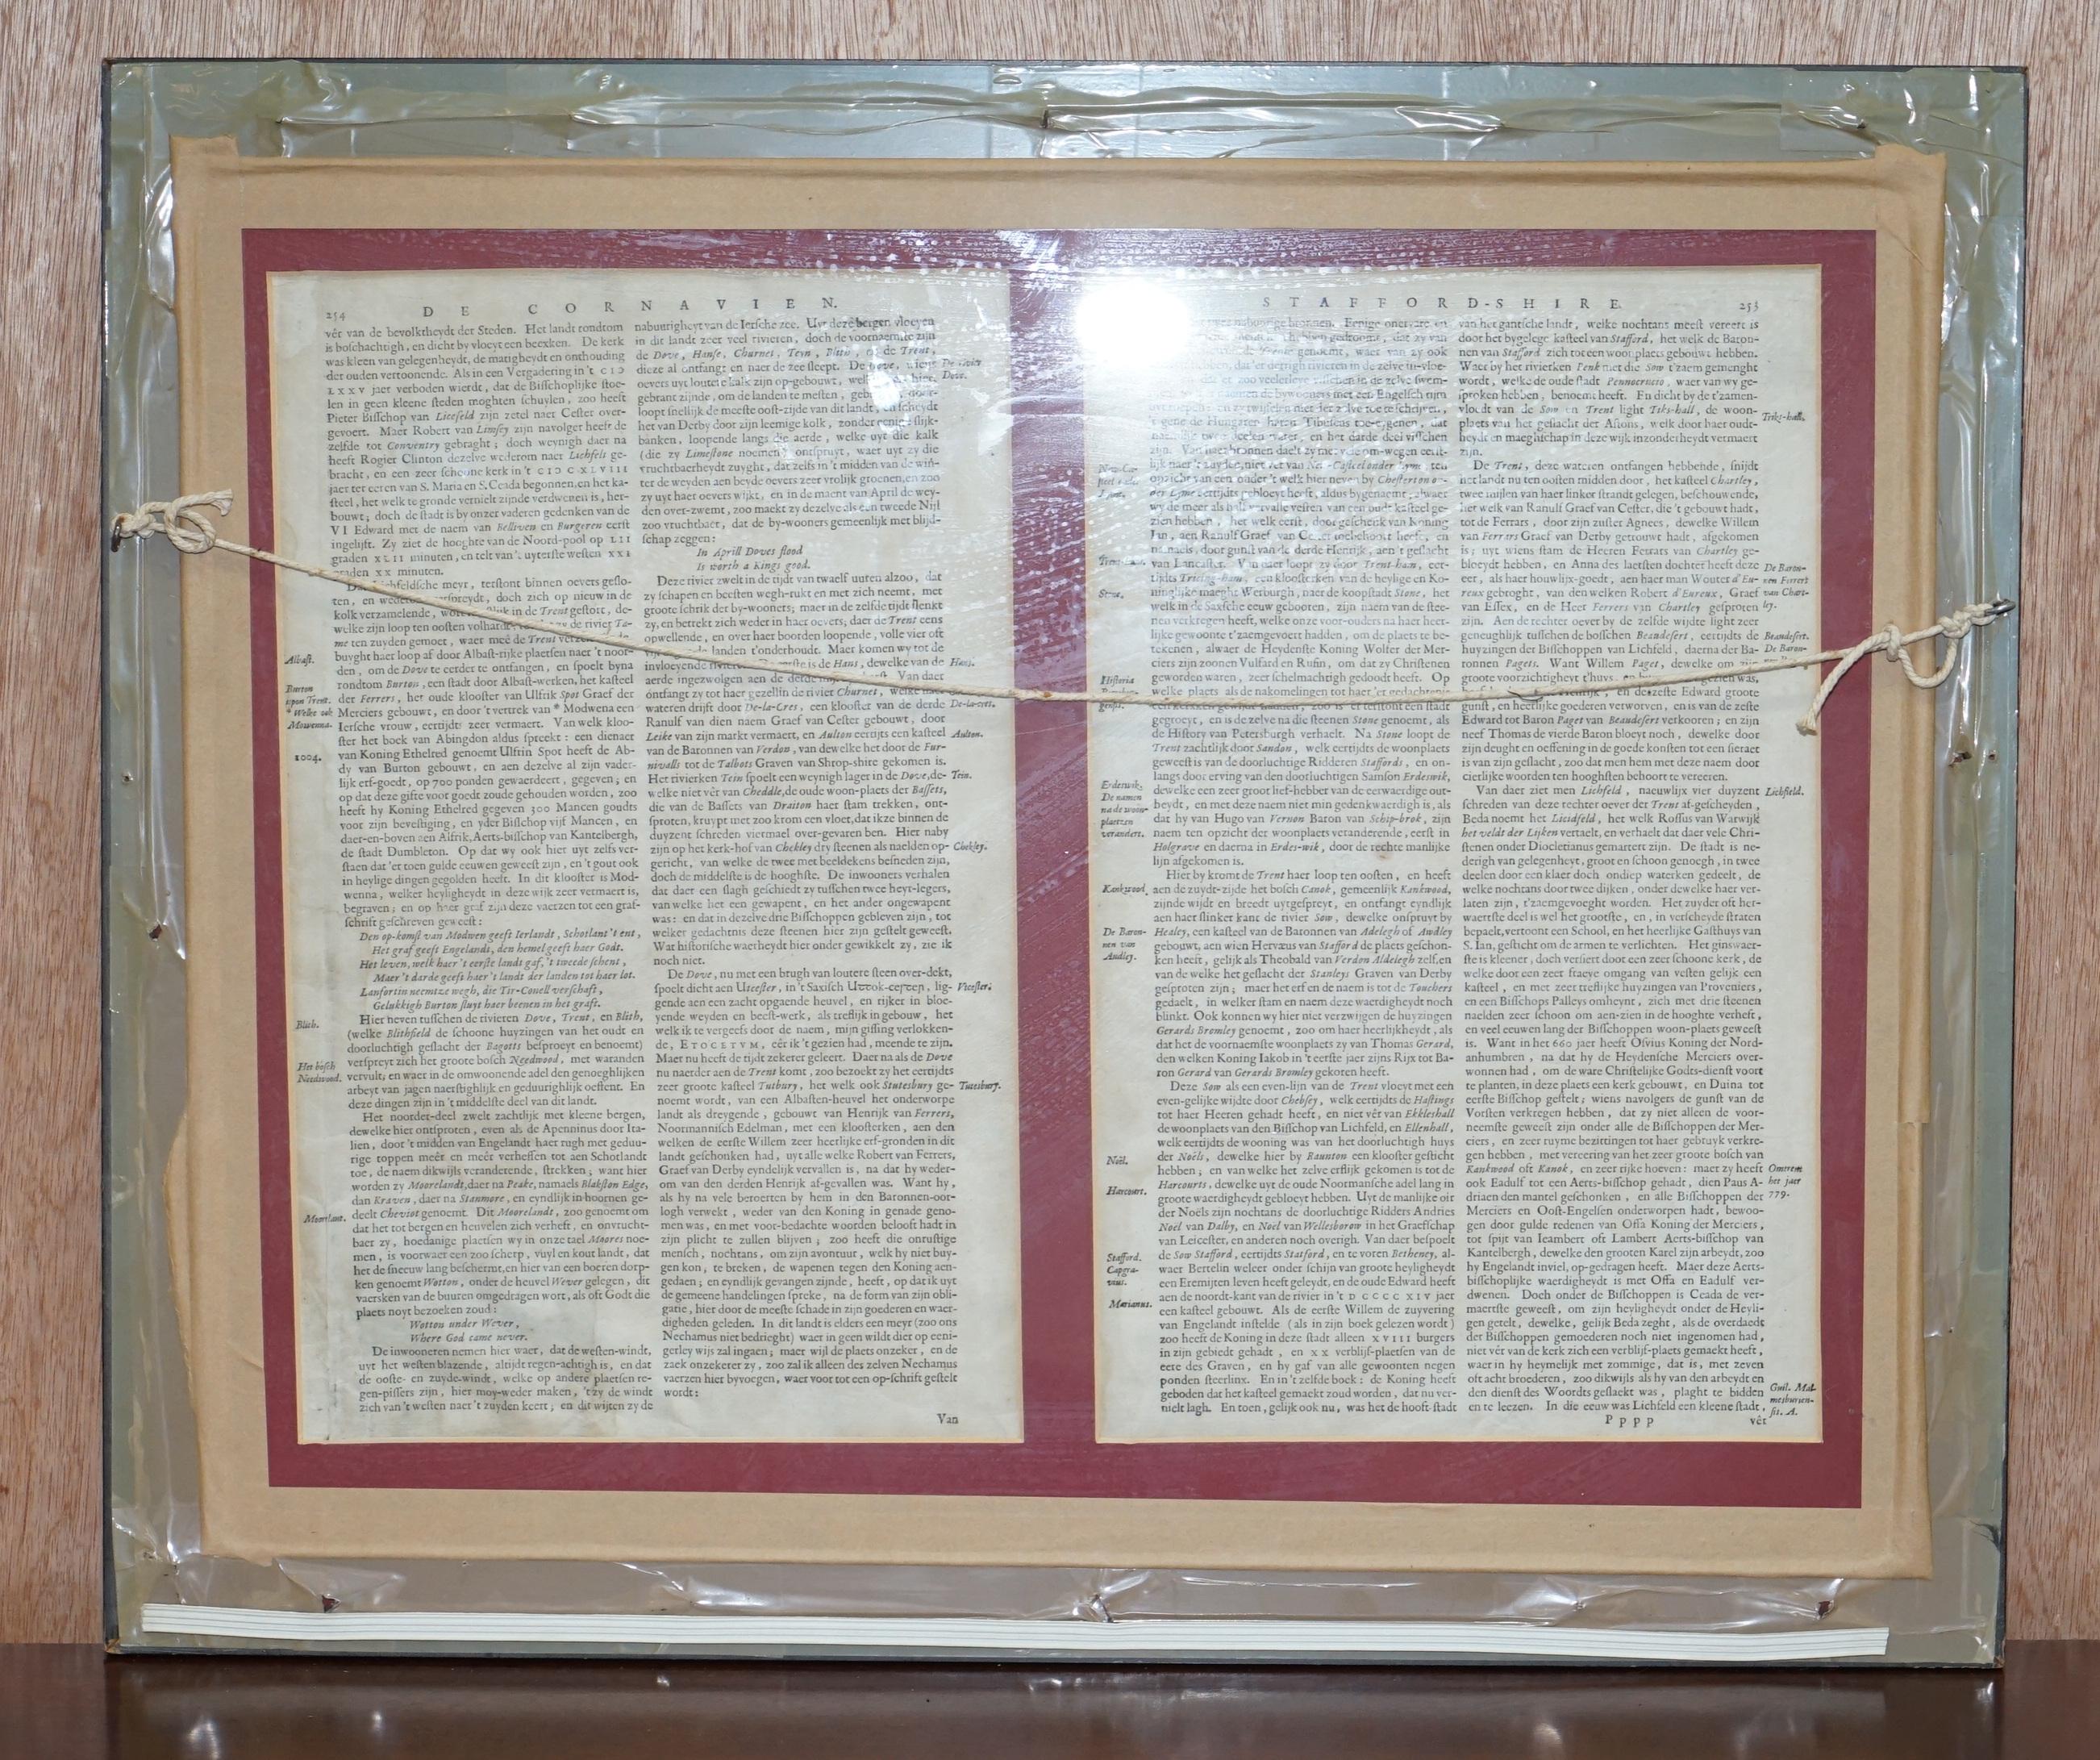 254
DE CORNAVIEN.
vêr van de bevolktheydt der Steden. Het landt rondtom
is boschachtigh, en dicht by vloeyt een beexken. De kerk
was kleen van gelegenheydt, de matigheydt en onthouding
der ouden vertoonende. Als in een Vergadering in 't CIↃ
LXXV jaer verboden wierdt, dat de Bisschoplijke stoe-
len in geen kleene steden moghten schuylen, zoo heeft
Pieter Bisschop van Licefeld zijn zetel naer Cester over-
gevoert. Maer Robert van Limsey zijn navolger heeft de
zelfde tot Conventry gebraght; doch weynigh daer na
heeft Rogier Clinton dezelve wederom naer Lichfels ge-
bracht, en een zeer schoone kerk in 't CIↃ C XLVIII
jaer ter eeren van S. Maria en S. Ceada begonnen, en het ka-
steel, het welk te gronde vernielt zijnde verdwenen is, her-
bouwt; doch de stadt is by onzer vaderen gedenken van de
VI Edward met de naem van Bellrven en Burgeren eerst
ingelijft. Zy ziet de hooghte van de Noord-pool op LII
graden XLII minuten, en telt van 't uyterste westen XXI
graden XX minuten.
ten, en
kolk verzamelende, in de Trent gestort, de-
welke zijn loop ten oosten de rivier Ta-
me ten zuyden gemoet, waer meê de Trent
buyght haer loop af door Albast-rijke plaetsen naer 't noor-
Albast.
den, om de Dove te eerder te ontfangen, en spoelt byna
rondtom Burton, een stadt door Albast-werken, het kasteel
Burton
upon Trent.
der Ferrers, het oude klooster van Ulfrik Spot Graef der
* Welke ook
Mowenna.
Merciers gebouwt, en door 't vertrek van * Modwena een
Iersche vrouw, eertijdts zeer vermaert. Van welk kloo-
ster het boek van Abingdon aldus spreekt: een dienaer
1004.
van Koning Ethelred genoemt Ulfrin Spot heeft de Ab-
dy van Burton gebouwt, en aen dezelve al zijn vader-
lijk erf-goedt, op 700 ponden gewaerdeert, gegeven; en
op dat deze gifte voor goedt zoude gehouden worden, zoo
heeft hy Koning Ethelred gegeven 300 Mancen goudts
voor zijn bevestiging, en yder Bisschop vijf Mancen, en
daer-en-boven aen Alfrik, Aerts-bisschop van Kantelbergh,
de stadt Dumbleton. Op dat wy ook hier uyt zelfs ver-
staen dat 'er toen gulde eeuwen geweest zijn, en 't gout ook
in heylige dingen gegolden heeft. In dit klooster is Mod-
wenna, welker heyligheydt in deze wijk zeer vermaert is,
begraven; en op haer graf zijn deze vaerzen tot een graf-
schrift geschreven geweest:
Den op-komst van Modwen geeft Ierlandt, Schotlant 't ent,
Het graf geeft Engelandt, den hemel geeft haer Godt.
Het leven, welk haer 't eerste landt gaf, 't tweede schent,
Maer 't darde geeft haer 't landt der landen tot haer lot.
Lanfortin neemt ze wegh, die Tir-Conell verschaft,
Gelukkigh Burton sluyt haer beenen in het graft.
Hier neven tusschen de rivieren Dove, Trent, en Blith,
Blith.
(welke Blithfield de schoone huyzingen van het oudt en
doorluchtigh geslacht der Bagotts besproeyt en benoemt)
verspreyt zich het groote bosch Needwood, met waranden
Het bosch
Needwood.
vervult; en waer in de omwoonende adel den genoeghlijken
arbeyt van jagen naerstighlijk en geduurighlijk oefent. En
deze dingen zijn in 't middelste deel van dit landt.
Het noorder-deel zwelt zachtlijk met kleene bergen,
dewelke hier ontsproten, even als de Apenninus door Ita-
lien, door 't midden van Engelandt haer rugh met geduu-
rige toppen meêr en meêr verheffen tot aen Schotlandt
toe, de naem dikwijls veranderende, strekken; want hier
worden zy Moorelandt, daer na Peake, namaels Blakston Edge,
dan Kraven, daer na Stanmore, en eyndlijk in hoornen ge-
Moorlant.
deelt Cheviot genoemt. Dit Moorelandt, zoo genoemt om
dat het tot bergen en heuvelen zich verheft, en onvrucht-
baer zy, hoedanige plaetsen wy in onze tael Moores noe-
men, is voorwaer een zoo scherp, vuyl en kout landt, dat
het de sneeuw lang beschermt, en hier van een boeren dorp-
ken genoemt Wotton, onder de heuvel Wever gelegen, dit
vaersken van de buuren omgedragen wort, als oft Godt die
plaets noyt bezoeken zoud:
Wotton under Wever,
Where God came never.
De inwooneren nemen hier waer, dat de westen-windt,
uyt het westen blazende, altijdt regen-achtigh is, en dat
de ooste- en zuyde-windt, welke op andere plaetsen re-
gen-pissers zijn, hier moy-weder maken, 't zy de windt
zich van 't westen naer 't zuyden keert; en dit wijten zy de
nabuurigheyt van de Iersche zee. Uyt deze bergen vloeyen
in dit landt zeer veel rivieren, doch de voornaemste zijn
de Dove, Hanse, Churnet, Tein, Blith, en de Trent,
die ze al ontfangt en naer de zee sleept. De Dove, wiens
De rivier
Dove.
oevers uyt loutere kalk zijn op-gebouwt,
gebrant zijnde, om de landen te mesten,
loopt snellijk de meeste oost-zijde van dit landt, en scheydt
het van Derby door zijn leemige kolk, zonder eenige slijk-
banken, loopende langs die aerde, welke uyt die kalk
(die zy Limestone noemen) ontspruyt, waer uyt zy die
vruchtbaerheydt zuyght, dat zelfs in 't midden van de win-
ter de weyden aen beyde oevers zeer vrolijk groenen, en zoo
zy uyt haer oevers wijkt, en in de maent van April de wey-
den over-zwemt, zoo maekt zy dezelve als een tweede Nijl
zoo vruchtbaer, dat de by-wooners gemeenlijk met blijd-
schap zeggen:
In Aprill Doves flood
Is worth a Kings good.
Deze rivier zwelt in de tijdt van twaelf uuren alzoo, dat
zy schapen en beesten wegh-rukt en met zich neemt, met
groote schrik der by-wooners; maer in de zelfde tijdt slenkt
zy, en betrekt zich weder in haer oevers; daer de Trent eens
opwellende, en over haer boorden loopende, volle vier oft
landen t'onderhoudt. Maer komen wy tot de
invloeyende is de Hans, dewelke van de
Hans.
aerde ingezwolgen aen de derde Van daer
ontfangt zy tot haer gezellin de rivier Churnet, welke
wateren drijft door De-la-Cres, een klooster van de derde
De-la-cres.
Ranulf van dien naem Graef van Cester gebouwt, door
Leike van zijn markt vermaert, en Aulton eertijts een kasteel
Aulton.
van de Baronnen van Verdon, van dewelke het door de Fur-
nivalls tot de Talbots Graven van Shrop-shire gekomen is.
Het rivierken Tein spoelt een weynigh lager in de Dove, de-
Tein.
welke niet vêr van Cheddle, de oude woon-plaets der Bassets,
die van de Bassets van Draiton haer stam trekken, ont-
sproten, kruypt met zoo krom een vloet, dat ik ze binnen de
duyzent schreden viermael over-gevaren ben. Hier naby
zijn op het kerk-hof van Chekley dry steenen als naelden op-
Chekley.
gericht, van welke de twee met beeldekens besneden zijn,
doch de middelste is de hooghste. De inwooners verhalen
dat daer een slagh geschiedt zy tusschen twee heyr-legers,
van welke het een gewapent, en het ander ongewapent
was: en dat in dezelve drie Bisschoppen gebleven zijn, tot
welker gedachtnis deze steenen hier zijn gestelt geweest.
Wat historische waerheydt hier onder gewikkelt zy, zie ik
noch niet.
De Dove, nu met een brugh van loutere steen over-dekt,
spoelt dicht aen Utcester, in 't Saxisch Uttok-cester, lig-
Vtcester.
gende aen een zacht opgaende heuvel, en rijker in bloe-
yende weyden en beest-werk, als treflijk in gebouw, het
welk ik te vergeefs door de naem, mijn gissing verlokken-
de, ETOCETVM, eêr ik 't gezien had, meende te zijn.
Maer nu heeft de tijdt zekerer geleert. Daer na als de Dove
nu naerder aen de Trent komt, zoo bezoekt zy het eertijdts
zeer groote kasteel Tutbury, het welk ook Stutesbury ge-
Tutesbury.
noemt wordt, van een Albasten-heuvel het onderworpe
landt als dreygende, gebouwt van Henrijk van Ferrers,
Noormannisch Edelman, met een kloosterken, aen den
welken de eerste Willem zeer heerlijke erf-gronden in dit
landt geschonken had, uyt alle welke Robert van Ferrers,
Graef van Derby eyndelijk vervallen is, na dat hy weder-
om van den derden Henrijk af-gevallen was. Want hy,
als hy na vele beroerten by hem in den Baronnen-oor-
logh verwekt, weder van den Koning in genade geno-
men was, en met voor-bedachte woorden belooft hadt in
zijn plicht te zullen blijven; zoo heeft die onrustige
mensch, nochtans, om zijn avontuur, welk hy niet buy-
gen kon, te breken, de wapenen tegen den Koning aen-
gedaen; en eyndlijk gevangen zijnde, heeft, op dat ik uyt
de gemeene handelingen spreke, na de form van zijn obli-
gatie, hier door de meeste schade in zijn goederen en waer-
digheden geleden. In dit landt is elders een meyr (zoo ons
Nechamus niet bedrieght) waer in geen wildt dier op eeni-
gerley wijs zal ingaen; maer wijl de plaets onzeker, en de
zaek onzekerer zy, zoo zal ik alleen des zelven Nechamus
vaerzen hier byvoegen, waer voor tot een op-schrift gestelt
wordt:
Van
STAFFORD-SHIRE
253
nabuurige bronnen. Eenige onervare en
gedroomt, dat zy van
genoemt, waer van zy ook
dat 'er dertigh rivieren in de zelve in-vloe-
zoo veelerleye visschen in de zelve swem-
de bywooners met een Engelsch rijm
en het darde deel visschen
lijk naer 't zuyden, niet vêr van New-Casteel onder Lyme, ten
opzicht van een ouder 't welk hier neven by Chesterton on-
der Lyme eertijdts gebloeyt heeft, aldus bygenaemt, alwaer
wy de meer als half vervalle vesten van een oudt kasteel ge-
zien hebben, het welk eerst, door geschenk van Koning
Jan, aen Ranulf Graef van Cester toebehoort heeft, en
namaels, door gunst van de derde Henrijk, aen 't geslacht
van Lancaster. Van daer loopt zy door Trent-ham, eer-
tijdts Tricing-ham, een kloosterken van de heylige en Ko-
Stone.
ninglijke maeght Werburgh, naer de koopstadt Stone, het
welk in de Saxsche eeuw geboren, zijn naem van de stee-
nen verkregen heeft, welke onze voor-ouders na haer heer-
lijke gewoonte t'zaemgevoert hadden, om de plaets te be-
tekenen, alwaer de Heydenste Koning Wolfer der Mer-
ciers zijn zoonen Vulfard en Rufin, om dat zy Christenen
geworden waren, zeer schelmachtigh gedoodt heeft. Op
Historia
welke plaets als de nakomelingen tot haer 'er gedachtenis
een kerkken gewijdt hadden, zoo is 'er terstont een stadt
gegroeyt, en is dezelve na die steenen Stone genoemt, als
de History van Petersburgh verhaelt. Na Stone loopt de
Trent zachtlijk door Sandon, welk eertijdts de woonplaets
geweest is van de doorluchtige Ridderen Staffords, en on-
langs door erving van den doorluchtigen Samson Erdeswik,
Erdeswik.
De namen
na de woon-
plaetzen
verandert.
dewelke een zeer groot lief-hebber van de eerwaerdige out-
heydt, en met deze naem niet min gedenkwaerdigh is, als
dat hy van Hugo van Vernon Baron van Schip-brok, zijn
naem ten opzicht der woonplaets veranderende, eerst in
Holgrave en daerna in Erdes-wik, door de rechte manlijke
lijn afgekomen is.
Hier by kromt de Trent haer loop ten oosten, en heeft
Kankwood.
aen de zuydt-zijde het bosch Canok, gemeenlijk Kankwood,
zijnde wijdt en breedt uytgespreyt, en ontfangt eyndlijk
aen haer slinker kant de rivier Sow, dewelke ontspruyt by
De Baron-
nen van
Audley.
Healey, een kasteel van de Baronnen van Adelegh of Awdley
gebouwt, aen wien Hervæus van Stafford de plaets geschon-
ken heeft, gelijk als Theobald van Verdon Aldelegh zelf, en
van de welke het geslacht der Stanleys Graven van Derby
gesproten zijn; maer het erf en de naem is tot de Touchers
gedaelt, in welker stam en naem deze waerdigheydt noch
blinkt. Ook konnen wy hier niet verzwijgen de huyzingen
Gerards Bromley genoemt, zoo om haer heerlijkheydt, als
dat het de voornaemste woonplaets zy van Thomas Gerard,
den welken Koning Iakob in 't eerste jaer zijns Rijx tot Ba-
ron Gerard van Gerards Bromley gekoren heeft.
Deze Sow als een even-lijn van de Trent vloeyt met een
even-gelijke wijdte door Chebsey, welk eertijdts de Hastings
tot haer Heeren gehadt heeft, en niet vêr van Ekkleshall
de woonplaets van den Bisschop van Lichfeld, en Ellenhall,
welk eertijdts de wooning was van het doorluchtigh huys
Noël.
der Noëls, dewelke hier by Raunton een klooster gesticht
hebben; en van welke het zelve erflijk gekomen is tot de
Harcourt.
Harcourts, dewelke uyt de oude Noormansche adel lang in
groote waerdigheydt gebloeyt hebben. Uyt de manlijke oir
der Noëls zijn nochtans de doorluchtige Ridders Andries
Noël van Dalby, en Noël van Wellesborow in het Graefschap
van Leicester, en anderen noch overigh. Van daer bespoelt
Stafford.
Capgra-
vius.
de Sow Stafford, eertijdts Statford, en te voren Betheney, al-
waer Bertelin weleer onder schijn van groote heyligheydt
een Eremijten leven heeft geleydt, en de oude Edward heeft
Marianus.
aen de noordt-kant van de rivier in 't D CCCC XIV jaer
een kasteel gebouwt. Als de eerste Willem de zuyvering
van Engelandt instelde (als in zijn boek gelezen wordt)
zoo heeft de Koning in deze stadt alleen XVIII burgers
in zijn gebiedt gehadt, en XX verblijf-plaetsen van de
eere des Graven, en hy gaf van alle gewoonten negen
ponden steerlinx. En in 't zelfde boek: de Koning heeft
geboden dat het kasteel gemaekt zoud worden, dat nu ver-
nielt lagh. En toen, gelijk ook nu, was het de hooft-stadt
van het gantsche landt, welke nochtans meest vereert is
door het bygelege kasteel van Stafford, het welk de Baron-
nen van Stafford zich tot een woonplaets gebouwt hebben.
Waer by het rivierken Penk met die Sow t'zaem gemenght
wordt, welke de oude stadt Pennocrucio, waer van wy ge-
sproken hebben, benoemt heeft. En dicht by de t'zamen-
vloedt van de Sow en Trent light Tiks-hall, de woon-
Tiks-hall.
plaets van het geslacht der Astons, welk door haer oudt-
heydt en maeghschap in deze wijk inzonderheydt vermaert
zijn.
De Trent, deze wateren ontfangen hebbende, snijdt
het landt nu ten oosten midden door, het kasteel Chartley,
twee mijlen van haer linker strandt gelegen, beschouwende,
het welk van Ranulf Graef van Cester, die 't gebouwt hadt,
tot de Ferrars, door zijn zuster Agnees, dewelke Willem
van Ferrers Graef van Derby getrouwt hadt, afgekomen
is; uyt wiens stam de Heeren Ferrars van Chartley ge-
bloeyt hebben, en Anna des laetsten dochter heeft deze
De Baron-
nen Ferrers
van Chart-
ley.
eer, als haer houwlijx-goedt, aen haer man Wouter d'Eu-
reux gebroght, van den welken Robert d'Eureux, Graef
van Essex, en de Heer Ferrers van Chartley gesproten
zijn. Aen de rechter oever by de zelfde wijdte light zeer
geneughlijk tusschen de bosschen Beaudesert, eertijdts de
Beaudesert.
huyzingen der Bisschoppen van Lichfeld, daerna der Ba-
De Baron-
ronnen Pagets. Want Willem Paget, dewelke om zijn
groote voorzichtigheyt t'huys,
en dezelfde Edward groote
gunst, en heerlijke goederen verworven, en is van de zeste
Edward tot Baron Paget van Beaudesert verkooren; en zijn
neef Thomas de vierde Baron bloeyt noch, dewelke door
zijn deught en oeffening in de goede konsten tot een sieraet
is van zijn geslacht, zoo dat men hem met deze naem door
cierlijke woorden ten hooghsten behoort te vereeren.
Van daer ziet men Lichfeld, nauwlijx vier duyzent
Lichfield.
schreden van deze rechter oever der Trent af-gescheyden,
Beda noemt het Licidfeld, het welk Rossus van Warwijk
het veldt der Lijken vertaelt, en verhaelt dat daer vele Chri-
stenen onder Diocletianus gemartert zijn. De stadt is ne-
derigh van gelegenheyt, groot en schoon genoegh, in twee
deelen door een klaer doch ondiep waterken gedeelt, de
welke nochtans door twee dijken, onder dewelke haer ver-
laten zijn, t'zaemgevoeght worden. Het zuyder oft her-
waertste deel is wel het grootste, en, in verscheyde straten
bepaelt, vertoont een School, en het heerlijke Gasthuys van
S. Ian, gesticht om de armen te verlichten. Het ginswaer-
ste is kleener, doch versiert door een zeer schoone kerk, de
welke door een zeer fraeye omgang van vesten gelijk een
kasteel, en met zeer treflijke huyzingen van Proveniers,
en een Bisschops Palleys omheynt, zich met drie steenen
naelden zeer schoon om aen-zien in de hooghte verheft,
en veel eeuwen lang der Bisschoppen woon-plaets geweest
is. Want in het 660 jaer heeft Osvius Koning der Nord-
anhumbren, na dat hy de Heydensche Merciers over-
wonnen had, om de ware Christelijke Godts-dienst voort
te planten, in deze plaets een kerk gebouwt, en Duina tot
eerste Bisschop gestelt; wiens navolgers de gunst van de
Vorsten verkregen hebben, dat zy niet alleen de voor-
neemste geweest zijn onder alle de Bisschoppen der Mer-
ciers, en zeer ruyme bezittingen tot haer gebruyk verkre-
gen hebben, met vereering van het zeer groote bosch van
Kankwood oft Kanok, en zeer rijke hoeven: maer zy heeft
Omtrent
het jaer
779.
ook Eadulf tot een Aerts-bisschop gehadt, dien Paus A-
driaen den mantel geschonken, en alle Bisschoppen der
Merciers en Oost-Engelsen onderworpen hadt, bewoo-
gen door gulde redenen van Offa Koning der Merciers,
tot spijt van Ieambert oft Lambert Aerts-bisschop van
Kantelbergh, dewelke den grooten Karel zijn arbeydt, zoo
hy Engelandt inviel, op-gedragen heeft. Maer deze Aerts-
bisschoplijke waerdigheydt is met Offa en Eadulf ver-
dwenen. Doch onder de Bisschoppen is Ceada de ver-
maertste geweest, om zijn heyligheydt onder de Heyli-
gen getelt, dewelke, gelijk Beda zeght, als de overdaedt
der Bisschoppen gemoederen noch niet ingenomen had,
niet vêr van de kerk zich een verblijf-plaets gemaekt heeft,
waer in hy heymelijk met zommige, dat is, met zeven
oft acht broederen, zoo dikwijls als hy van den arbeydt en
den dienst des Woordts geslaekt was, plaght te bidden
Guil. Mal-
mesburien-
sis. A.
en te leezen. In die eeuw was Lichfeld een kleene stadt,
Pppp
vêr